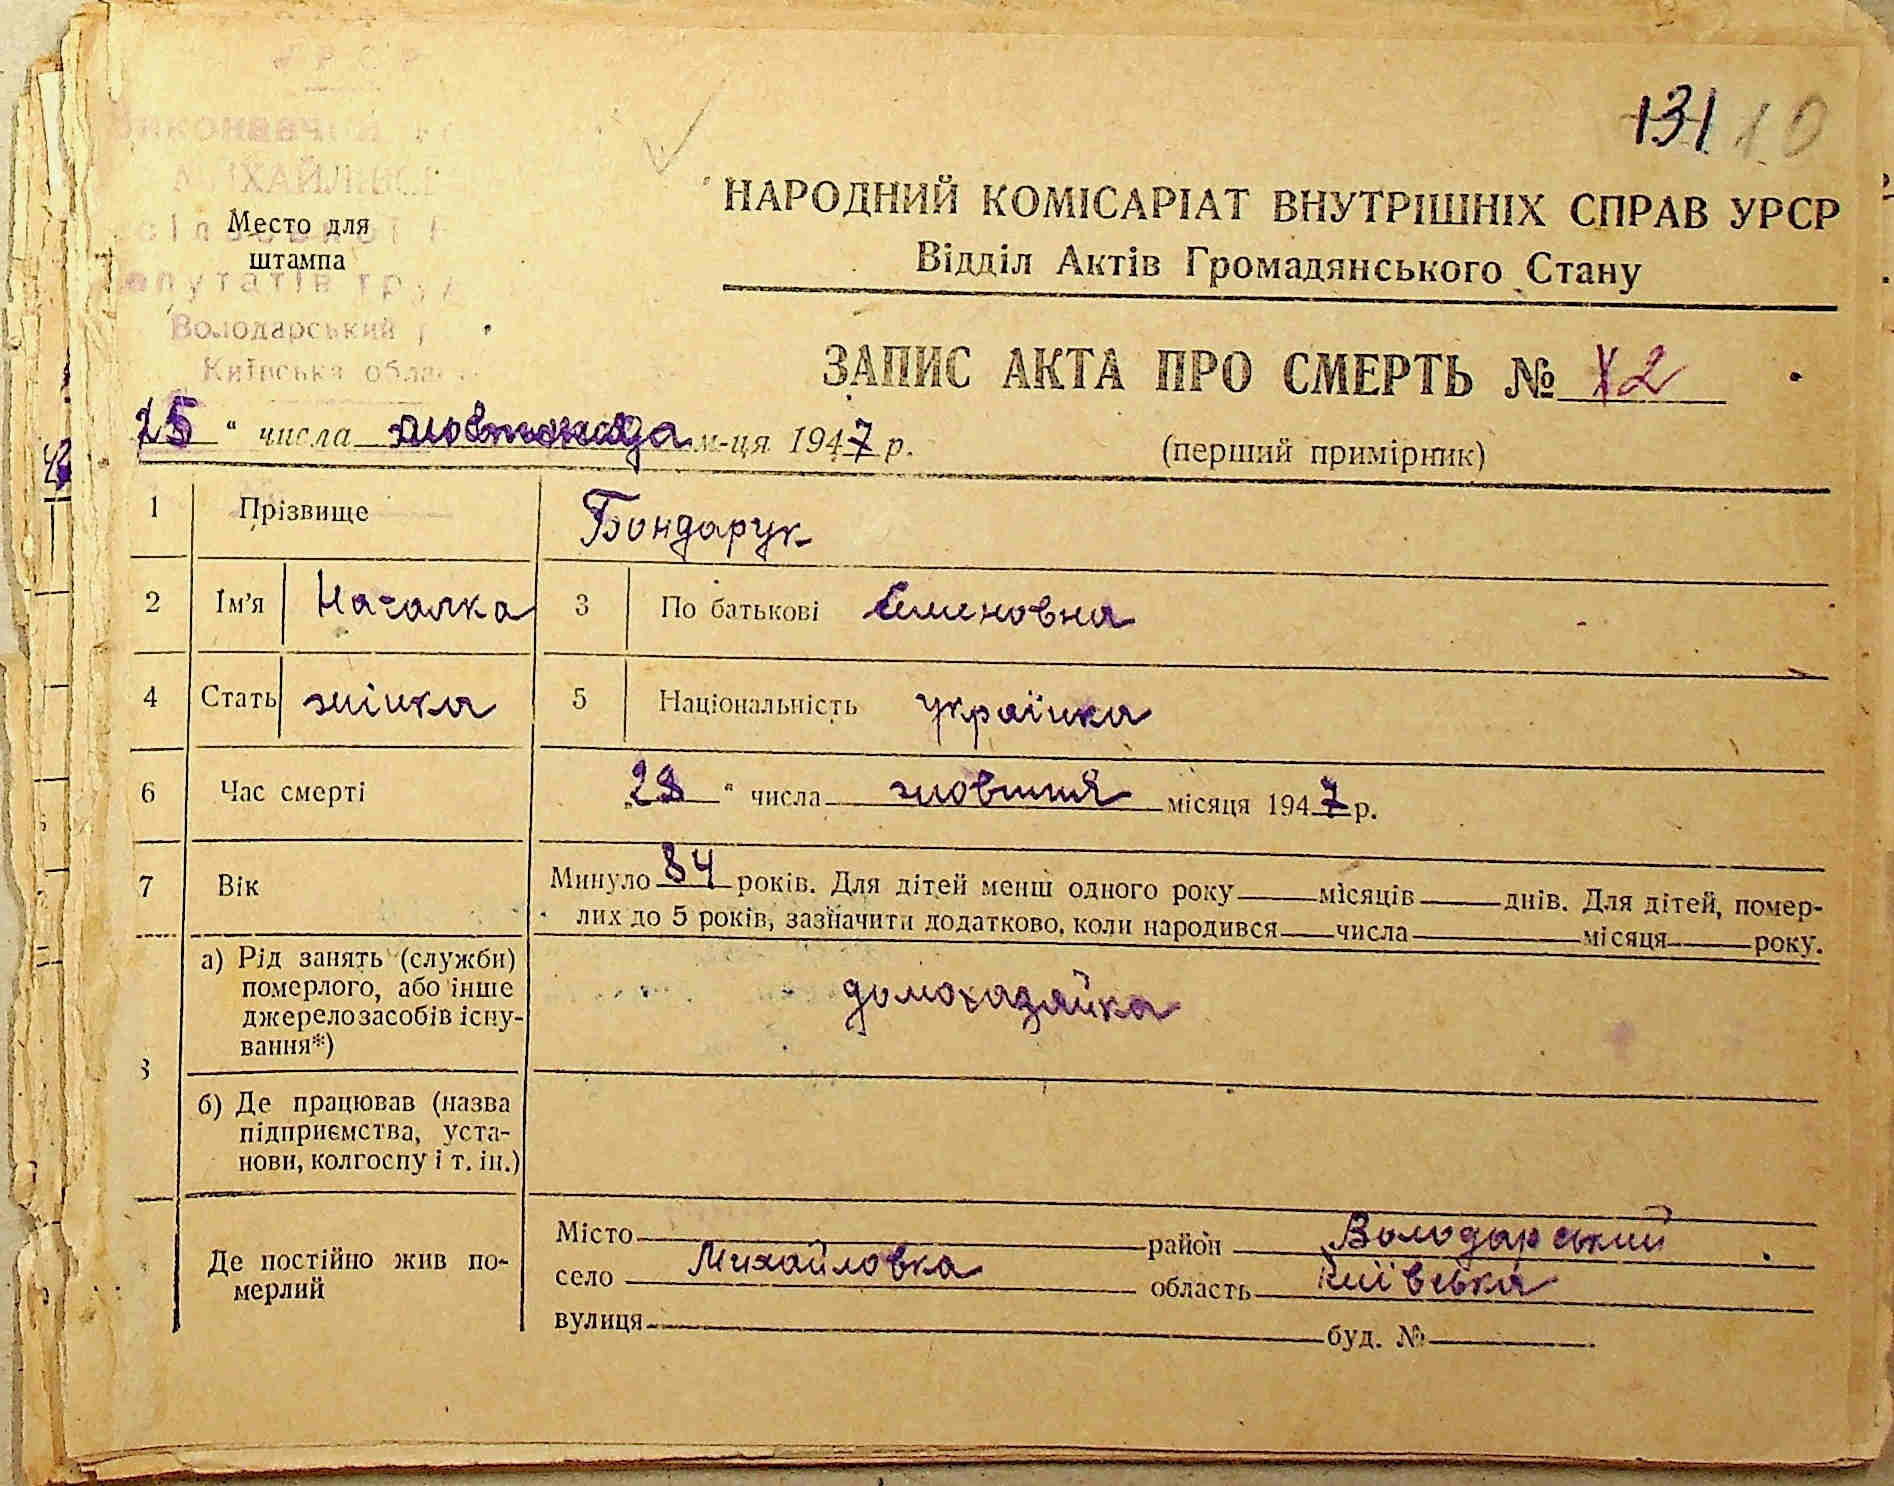 УРСР
131 10
Виконавчий
МИХАЙЛІВСЬ
Место для
штампа
сільської
депутатів тру
Володарський
Київська обла
НАРОДНИЙ КОМІСАРІАТ ВНУТРІШНІХ СПРАВ УРСР
Відділ Актів Громадянського Стану
ЗАПИС АКТА ПРО СМЕРТЬ № 12
25 " числа м-ця 1947 р.
(перший примірник)
1 Прізвище Бондарук
2 Ім'я Наталка 3 По батькові Семеновна
4 Стать жінка 5 Національність українка
6 Час смерті 23 " числа жовтня місяця 1947 р.
7 Вік Минуло 84 років. Для дітей менш одного року місяців днів. Для дітей, помер-
лих до 5 років, зазначити додатково, коли народився числа місяця року.
8 а) Рід занять (служби)
померлого, або інше
джерело засобів існу-
вання*)
домохазяйка
б) Де працював (назва
підприємства, уста-
нови, колгоспу і т. ін.)
Де постійно жив по-
мерлий
Місто район Володарський
село Михайловка область Київська
вулиця буд. №